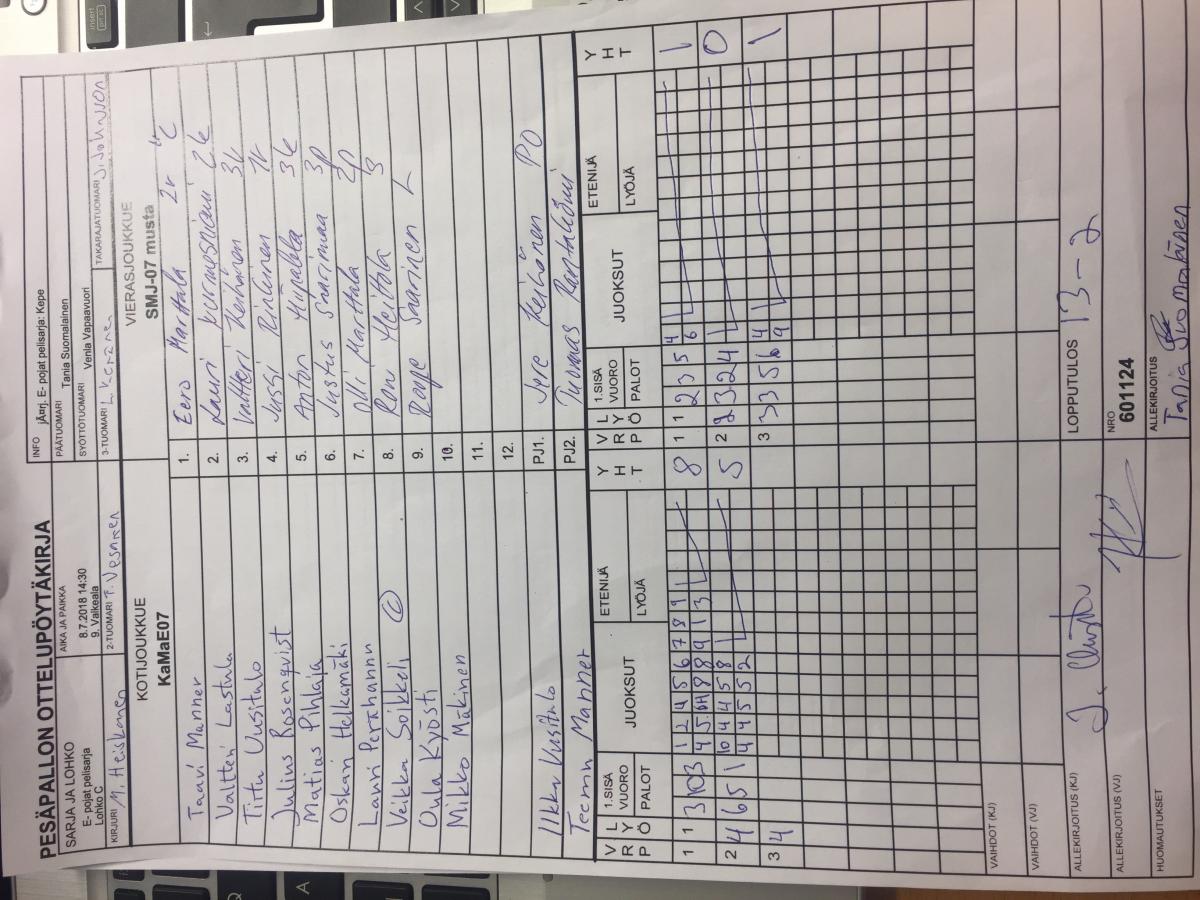 PESÄPALLON OTTELUPÖYTÄKIRJA
INFO jÄrj. E- pojat pelisarja: Kepe
SARJA JA LOHKO
E- pojat pelisarja
Lohko C
AIKA JA PAIKKA
8.7.2018 14:30
9. Valkeala
PÄÄTUOMARI Tania Suomalainen
SYÖTTÖTUOMARI Venla Vapaavuori
KIRJURI M. Heiskanen
2-TUOMARI P. Vesanen
3-TUOMARI L. Keränen
TAKARAJATUOMARI
KOTIJOUKKUE
KaMaE07
VIERASJOUKKUE
SMJ-07 musta
Taavi Manner 1. Eero Marttala 2v
Valtteri Lastula 2. Lauri 2k
Tittu Uusitalo 3. Valtteri 3v
Julius Rosenqvist 4. Jussi 1v
Matias Pihlaja 5. Anton 3k
Oskari Helkamäki 6. Justus Saarimaa 3p
Lauri Perähannu 7. Olli Marttala 2p
Veikka Soikkeli C 8. Roni S
Oula Kyösti 9. Roope Saarinen L
Mikko Mäkinen 10.
11.
12.
Ilkka Uusitalo PJ1. Jyre Keihänen PO
Teemu Manner PJ2. Tuomas Rantalaimi
V R P L Y Ö 1.SISÄ VUORO PALOT JUOKSUT ETENIJÄ LYÖJÄ Y H T V R P L Y Ö 1.SISÄ VUORO PALOT JUOKSUT ETENIJÄ LYÖJÄ Y H T
1 1 3 10 3 1 2 4 5 6 7 8 9 8 1 1 2 3 5 4 1
4 5 8 8 9 1 3 6
2 4 6 5 1 10 4 4 5 8 5 2 2 3 2 4 0
4 4 5 5 2
3 4 3 3 3 5 6 4 1
9 9
VAIHDOT (KJ)
VAIHDOT (VJ)
ALLEKIRJOITUS (KJ)
LOPPUTULOS 13-2
ALLEKIRJOITUS (VJ)
NRO
601124
HUOMAUTUKSET
ALLEKIRJOITUS
Tania Suomalainen